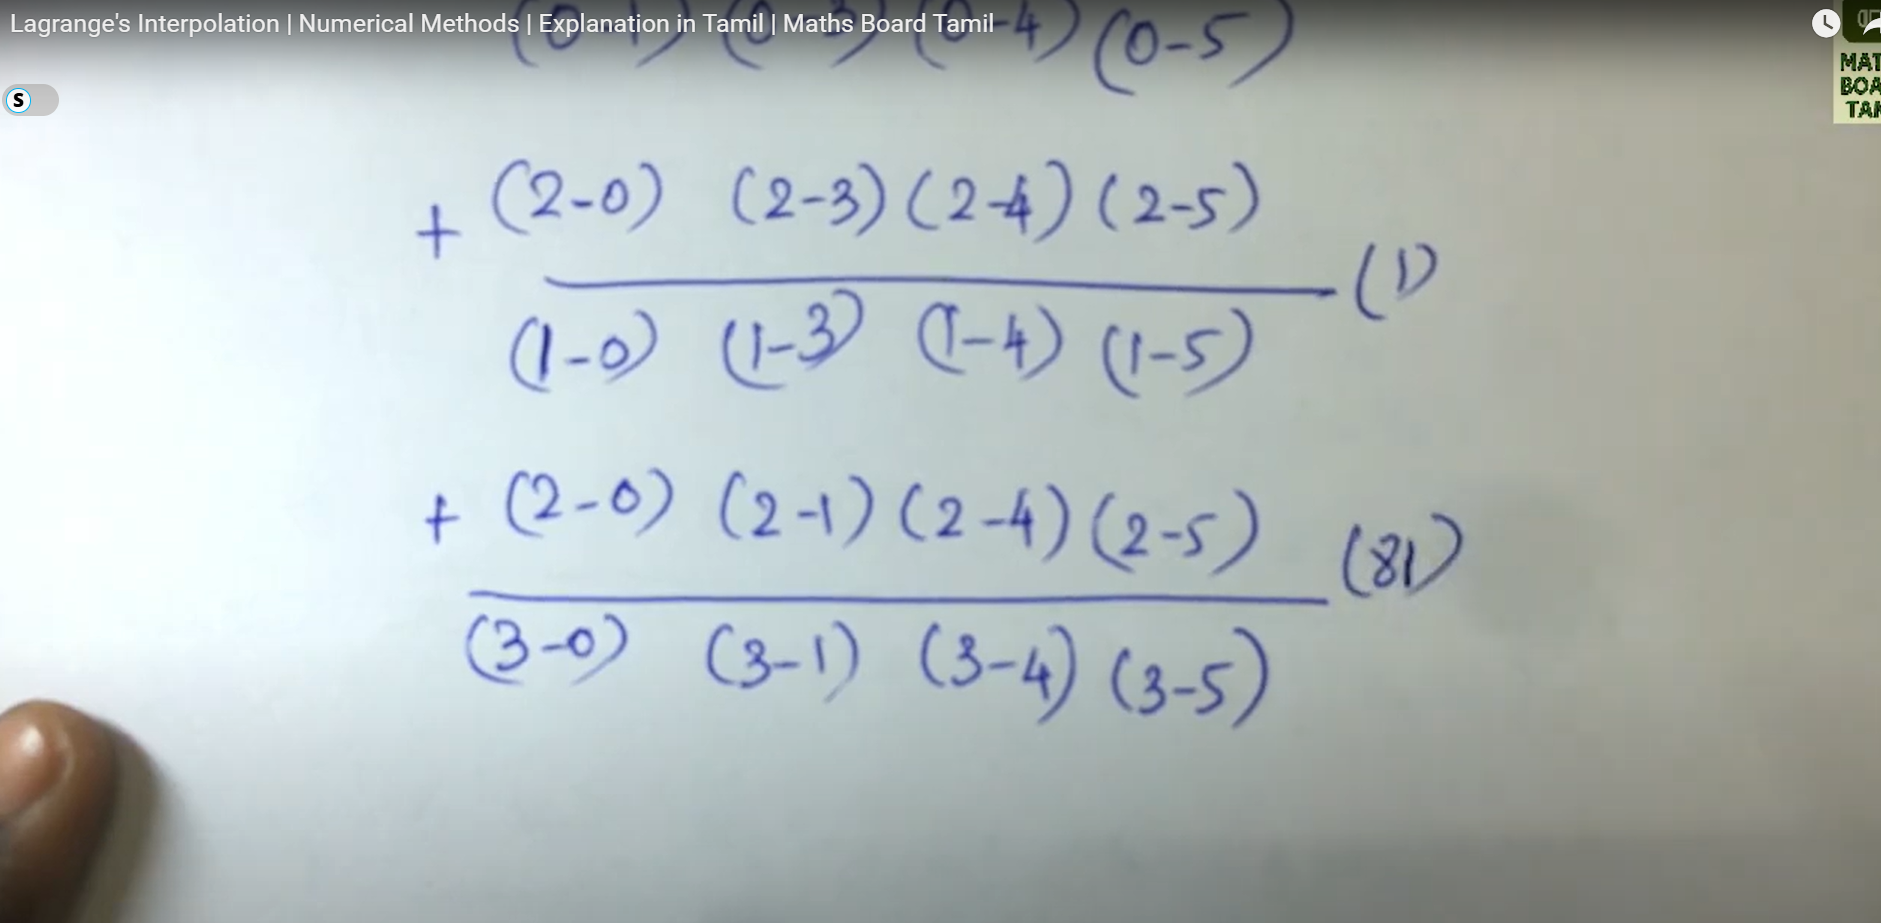 Lagrange's Interpolation | Numerical Methods | Explanation in Tamil | Maths Board Tamil
(0-1) (0-3) (0-4) (0-5)
S
MAT
BOA
TAM
+ (2-0) (2-3) (2-4) (2-5)
(1)
(1-0) (1-3) (1-4) (1-5)
+ (2-0) (2-1) (2-4) (2-5)
(81)
(3-0) (3-1) (3-4) (3-5)